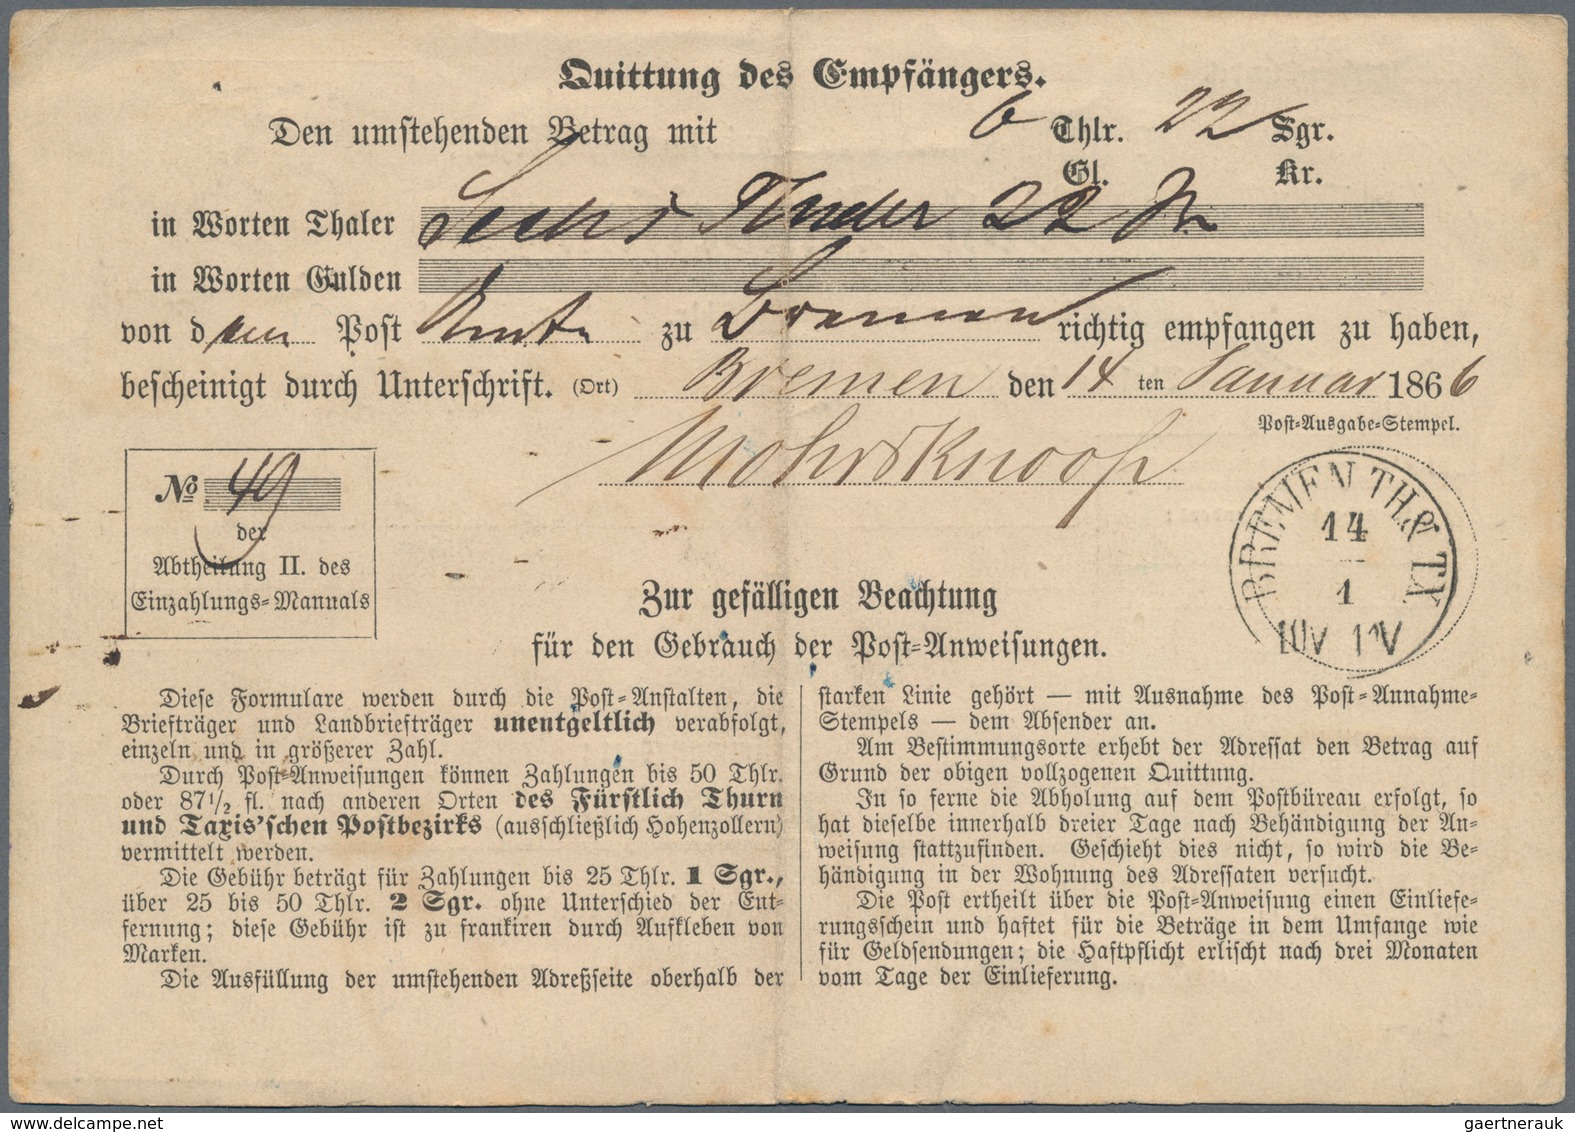 Quittung des Empfängers.
Den umstehenden Betrag mit 6 Thlr. 22 Sgr.
Gl. Kr.
in Worten Thaler Sechs Thaler 22
in Worten Gulden
von dem Post Amte zu Bremen richtig empfangen zu haben,
bescheinigt durch Unterschrift. (Ort) Bremen den 14 ten Januar 1866
Post-Ausgabe-Stempel.
Mohr & Knoop
No. 49
der
Abtheilung II. des
Einzahlungs-Manuals
BREMEN TH & TX
14
1
10V 11V
Zur gefälligen Beachtung
für den Gebrauch der Post-Anweisungen.
Diese Formulare werden durch die Post-Anstalten, die
Briefträger und Landbriefträger unentgeltlich verabfolgt,
einzeln und in größerer Zahl.
Durch Post-Anweisungen können Zahlungen bis 50 Thlr.
oder 87 1/2 fl. nach anderen Orten des Fürstlich Thurn
und Taxis'schen Postbezirks (ausschließlich Hohenzollern)
vermittelt werden.
Die Gebühr beträgt für Zahlungen bis 25 Thlr. 1 Sgr.,
über 25 bis 50 Thlr. 2 Sgr. ohne Unterschied der Ent-
fernung; diese Gebühr ist zu frankiren durch Aufkleben von
Marken.
Die Ausfüllung der umstehenden Adreßseite oberhalb der
starken Linie gehört — mit Ausnahme des Post-Annahme-
Stempels — dem Absender an.
Am Bestimmungsorte erhebt der Adressat den Betrag auf
Grund der obigen vollzogenen Quittung.
In so ferne die Abholung auf dem Postbüreau erfolgt, so
hat dieselbe innerhalb dreier Tage nach Behändigung der An-
weisung stattzufinden. Geschieht dies nicht, so wird die Be-
händigung in der Wohnung des Adressaten versucht.
Die Post ertheilt über die Post-Anweisung einen Einliefe-
rungsschein und haftet für die Beträge in dem Umfange wie
für Geldsendungen; die Haftpflicht erlischt nach drei Monaten
vom Tage der Einlieferung.
gaertnerauk